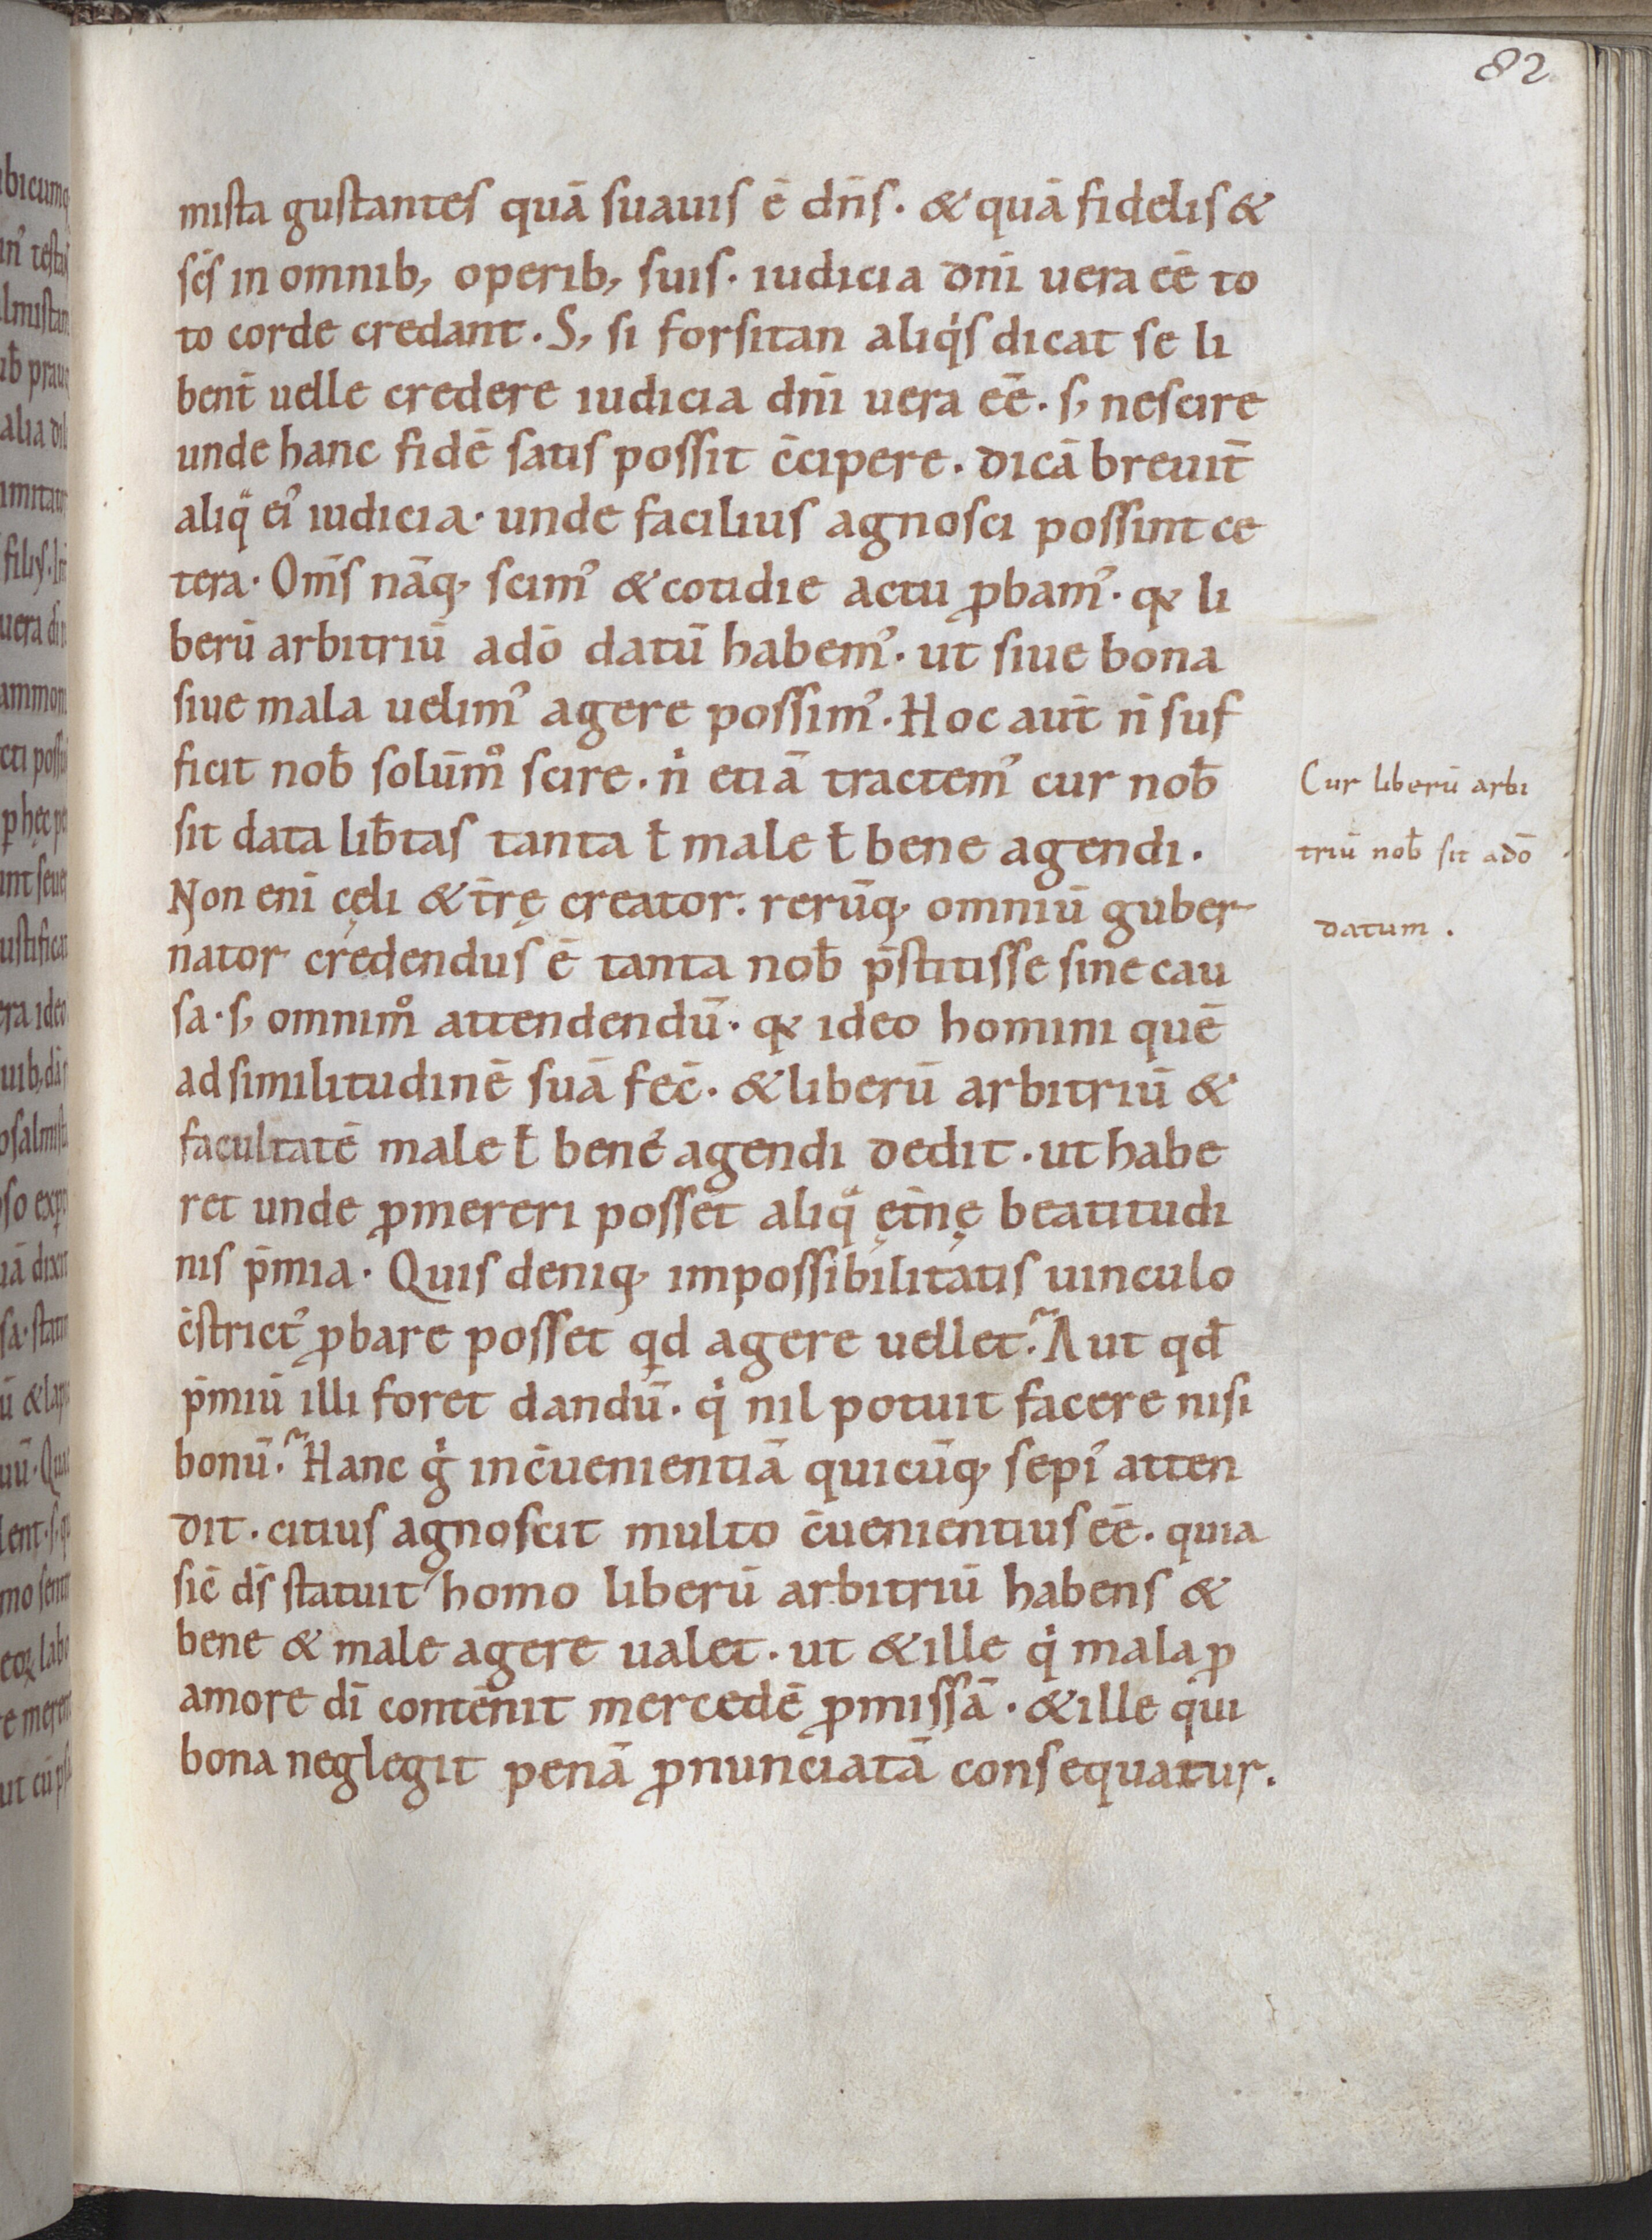 82
mista gustantes quā suauis ē dn̄s. & quā fidelis &
sc̄s in omnib; operib; suis. iudicia dn̄i uera eē to
to corde credant. S; si forsitan aliqͥs dicat se li
bent̄ uelle credere iudicia dn̄i uera eē. s; nescire
unde hanc fidē satis possit c̄cipere. dicā breuit̄
aliqͣ ei᾽ iudicia. unde facilius agnosci possint ce
tera. Om̄s nāq; scim᾽ & cotidie actu ꝓbam᾽. qꝫ li
berū arbitriū adō datū habem᾽. ut siue bona
siue mala uelim᾽ agere possim᾽. Hoc aut̄ n̄ suf
ficit nob̄ solūmͦ scire. nͥ etiā tractem᾽ cur nob̄
sit data lib̄tas tanta ł male ł bene agendi.
Non eni ̄cęli & t̄rę creator. rerūq; omniū guber
nator credendus ē tanta nob̄ p̄stitisse sine cau
sa. s; omnimͦ attendendū. qꝫ ideo homini quē
ad similitudinē suā fec̄. & liberū arbitriū &
facultatē male ł bene agendi dedit. ut habe
ret unde ꝓmereri posset aliqͣ ęt̄nę beatitudi
nis p̄mia. Quis deniq; impossibilitatis uinculo
c̄strict᾽ ꝓbare posset qd agere uellet? Aut qđ
p̄miū illi foret dandū. qͥ nil potuit facere nisi
bonū? Hanc gͥ inc̄uenientiā quicūq; sepi᾽ atten
dit. citius agnoscit multo c̄uenientius eē. quia
sic̄ ds̄ statuit homo liberū arbitriū habens &
bene & male agere ualet. ut & ille qͥ mala ꝓ
amore dī contēnit mercedē ꝓmissā. & ille qui
bona neglegit penā ꝓnunciatā consequatur.
Cur liberū arbi
triū nob̄ sit adō
datum.